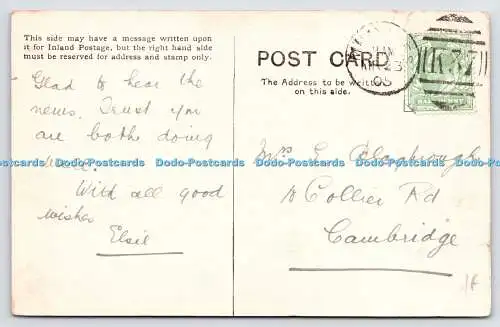 This side may have a message written upon
it for Inland Postage, but the right hand side
must be reserved for address and stamp only.
Glad to hear the
news. Trust you
are bothe doing
well.
With all good
wishes
Elsie
POST CARD
The Address to be written
on this side.
Mrs E
10 Collier Rd
Cambridge
05
HALFPENNY
Dodo-Postcards Dodo-Postcards Dodo-Postcards Dodo-Postcards Dodo-Postcards